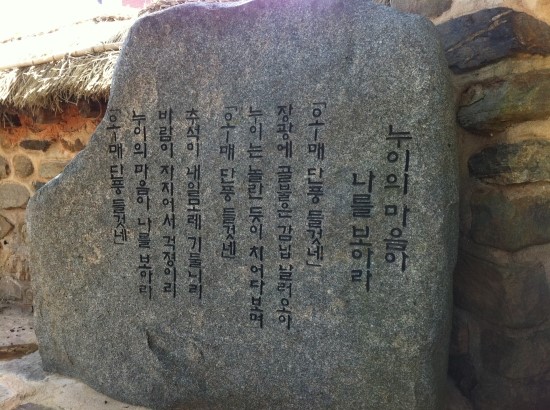 누이의 마음아
나를 보아라
「오-매 단풍 들것네」
장광에 골붉은 감닙 날러오아
누이는 놀란 듯이 치어다보며
「오-매 단풍 들것네」
추석이 내일모레 기둘니리
바람이 자지어서 걱정이리
누이의 마음아 나를 보아라
「오-매 단풍 들것네」